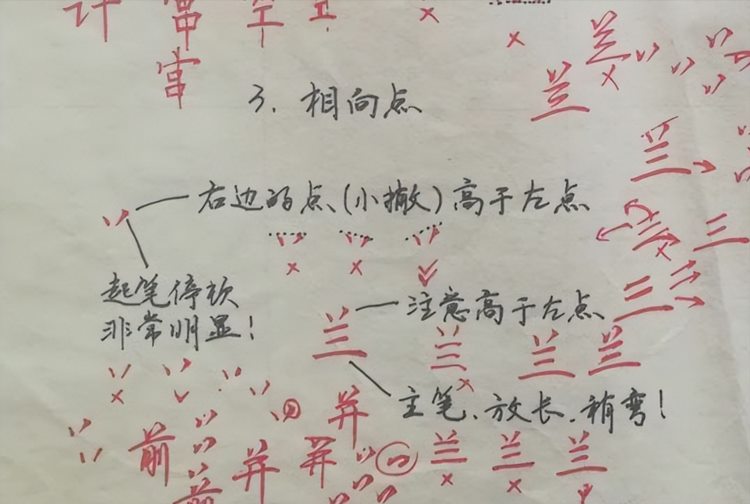 计 富 空 工
富
兰
兰
3. 相向点
兰
右边的点、(小撇)高于左点
兰 三
起笔停顿
非常明显!
三
兰 注意高于左点
兰 兰 兰
主笔、放长、稍弯!
并
前 并 并 兰 兰 兰
前